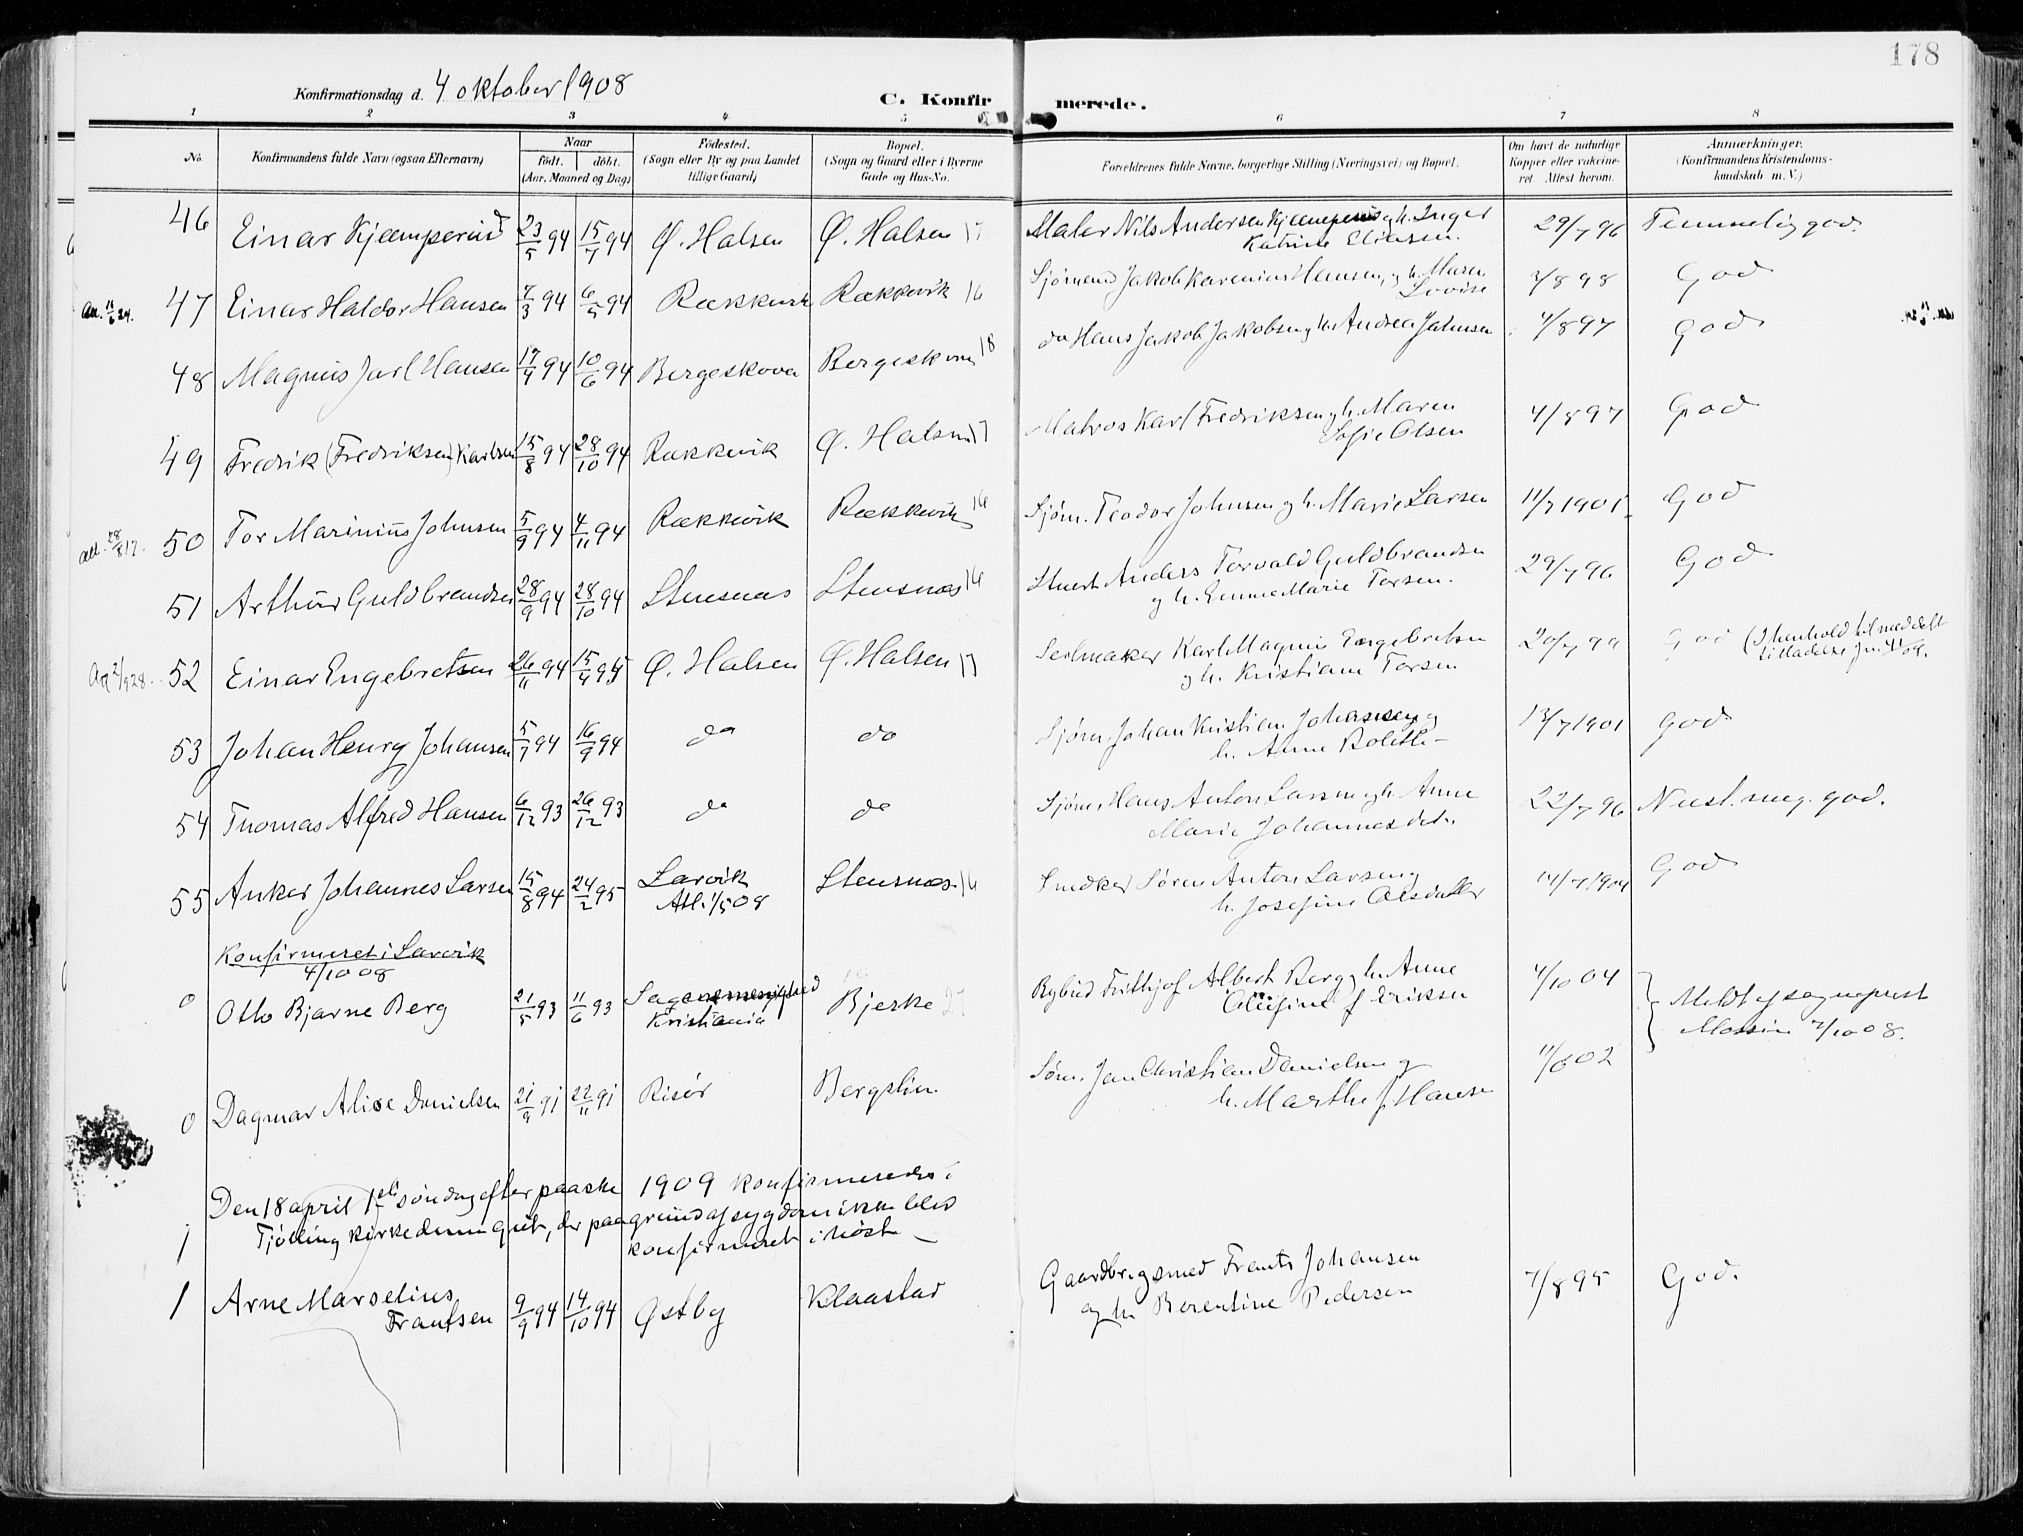 178
Konfirmationsdag d. 4 oktober 1908
C. Konfirmerede.
1 2 3 4 5 6 7 8
No. Konfirmandens fulde Navn (ogsaa Efternavn) Naar født. døbt. (Aar, Maaned og Dag) Fødested. (Sogn eller By og paa Landet tillige Gaard) Bopæl. (Sogn og Gaard eller i Byerne Gade og Hus-No. Forældrenes fulde Navne, borgerlige Stilling (Næringsvei) og Bopæl. Om havt de naturlige Kopper eller vaccineret. Attest herom. Anmærkninger. (Konfirmandens Kristendomskundskab m. V.)
46 Einar Kjæmperud 23/5 94 15/7 94 Ø. Halsen Ø. Halsen 17 Maler Nils Andersen Kjæmperud og h. Inger Katrine Eliasen. 29/7 96 Temmelig god.
47 Einar Haldor Hansen 7/3 94 6/5 94 Rækkevik Rækkevik 16 Sjømand Jakob Karenius Hansen, og h. Maren Lovise 3/8 98 God
48 Magnus Jarl Hansen 17/4 94 10/6 94 Bergeskoven Bergeskoven 18 do Hans Jakob Jakobsen og h. Andrea Jahnsen 4/8 97 God
49 Fredrik (Fredriksen) Karlsen 15/8 94 28/10 94 Rækkevik Ø. Halsen 17 Matros Karl Fredriksen og h. Maren Sofie Olsen 4/8 97 God
50 Tor Marinius Johnsen 5/9 94 4/11 94 Rækkevik Rækkevik 16 Sjøm. Teodor Johnsen og h. Marie Larsen 11/7 1901. God
51 Arthur Guldbrandsen 28/9 94 28/10 94 Stensnæs Stensnæs 16 Stuert Anders Torvald Guldbrandsen og h. Emma Marie Torsen. 29/7 96 God
52 Einar Engebretsen 26/11 94 15/4 95 Ø. Halsen Ø. Halsen 17 Seilmaker Karl Magnus Engebretsen og h. Kristiane Torsen 20/7 99 God (I henhold til meddelt tilladelse
53 Johan Henry Johansen 5/7 94 16/9 94 do do Sjøm. Johan Kristian Johansen og h. Anne Bolette 13/7 1901 God
54 Thomas Alfred Hansen 6/12 93 26/12 93 do do Sjøm. Hans Anton Larsen og h. Anne Marie Johannesdtr. 22/7 96 Næst. meg. god.
55 Anker Johannes Larsen 15/8 94 24/2 95 Larvik Att. 1/5 08 Stensnæs 16 Snedker Søren Anton Larsen og h. Josefine Olsdatter 14/7 1904 God
Konfirmeret i Larvik
4/10 08
0 Otto Bjarne Berg 21/5 93 11/6 93 Sagenemenighed Kristiania Bjerke Rybud Frithjof Albert Berg og h. Anne Olufine f Eriksen 4/10 04 Meldt af sogneprest 7/10 08.
0 Dagmar Alise Danielsen 21/9 91 22/11 91 Risør Bergslien Søm. Jan Christian Danielsen og h. Marthe f. Hansen 11/6 02
Den 18 april 1ste søndag efter paaske 1909 konfirmeredes i
1 Tjølling kirke denne gut, der paa grund af sygdom ikke blev
konfirmeret i høst –
1 Arne Marselius Frantsen 9/9 94 14/10 94 Østby Klaastad Gaardbr. og smed Frants Johansen og h. Berentine Pedersen 7/8 95 God.